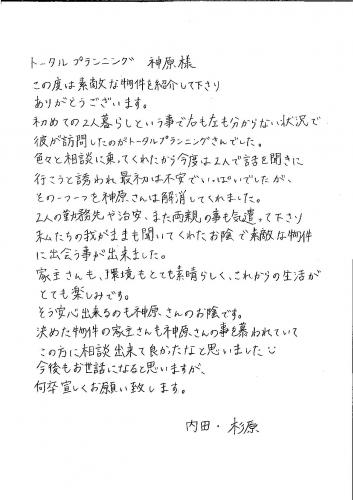 トータルプランニング 神原様
この度は素敵な物件を紹介して下さり
ありがとうございます。
初めての2人暮らしという事で右も左も分からない状況で
彼が訪問したのがトータルプランニングさんでした。
色々と相談に乗ってくれたから今度は2人で話を聞きに
行こうと誘われ最初は不安でいっぱいでしたが、
その一つ一つを神原さんは解消してくれました。
2人の勤務先や治安、また両親の事も気遣って下さり
私たちの我がままも聞いてくれたお陰で素敵な物件
に出会う事が出来ました。
家主さんも、環境もとても素晴らしく、これからの生活が
とても楽しみです。
そう安心出来るのも神原さんのお陰です。
決めた物件の家主さんも神原さんの事を慕われていて
この方に相談出来て良かったなと思いました
今後もお世話になると思いますが、
何卒宜しくお願い致します。
内田・杉原